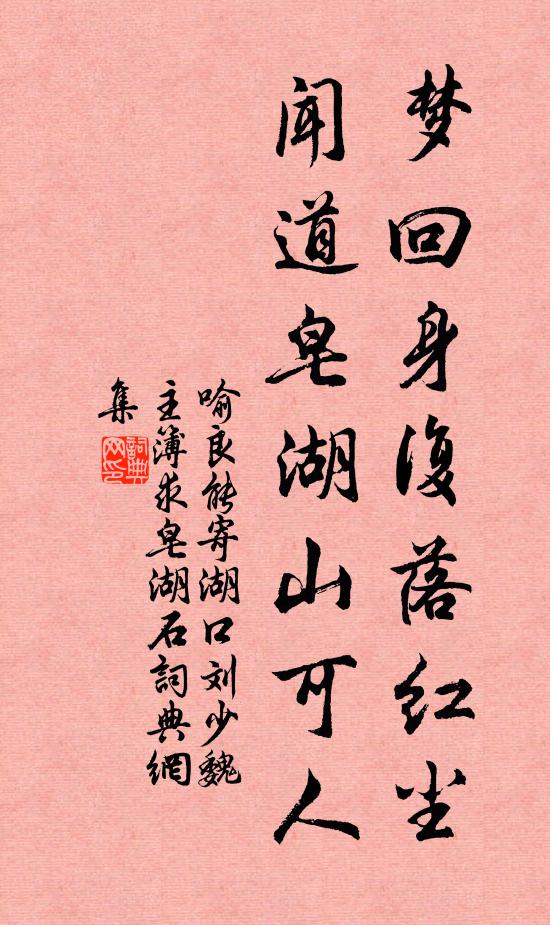 梦回身复落红尘
闻道皂湖山可人
喻良能寄湖口刘少魏
主簿求皂湖石詞典網
集
詞典
网印